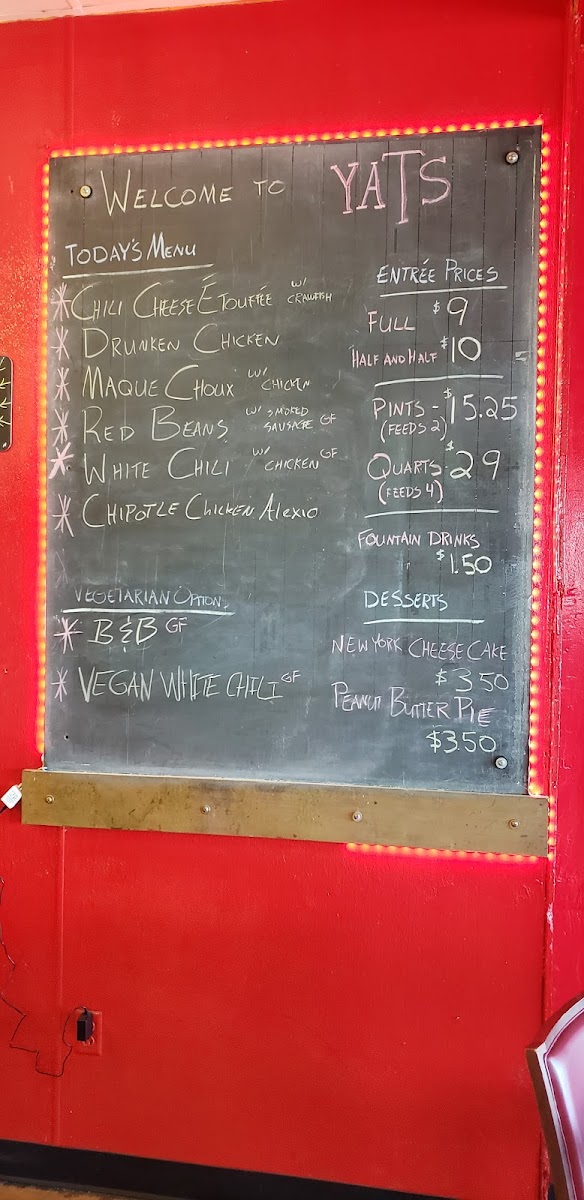 WELCOME TO YATS
TODAY'S MENU
CHILI CHEESE ÉTOUFÉE W/ CRAWFISH
DRUNKEN CHICKEN
MAQUE CHOUX W/ CHICKEN
RED BEANS W/ SMOKED SAUSAGE GF
WHITE CHILI W/ CHICKEN GF
CHIPOTLE CHICKEN ALEXIO
VEGETARIAN OPTIONS
B & B GF
VEGAN WHITE CHILI GF
ENTRÉE PRICES
FULL $9
HALF AND HALF $10
PINTS - $15.25
(FEEDS 2)
QUARTS - $29
(FEEDS 4)
FOUNTAIN DRINKS
$1.50
DESSERTS
NEW YORK CHEESE CAKE
$3.50
PEANUT BUTTER PIE
$3.50